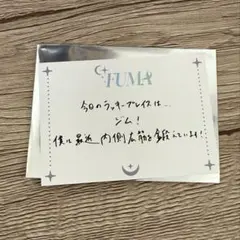 FUMA
今日のラッキープレイスは…
ジム！
僕は最近、内側広筋を鍛えています！